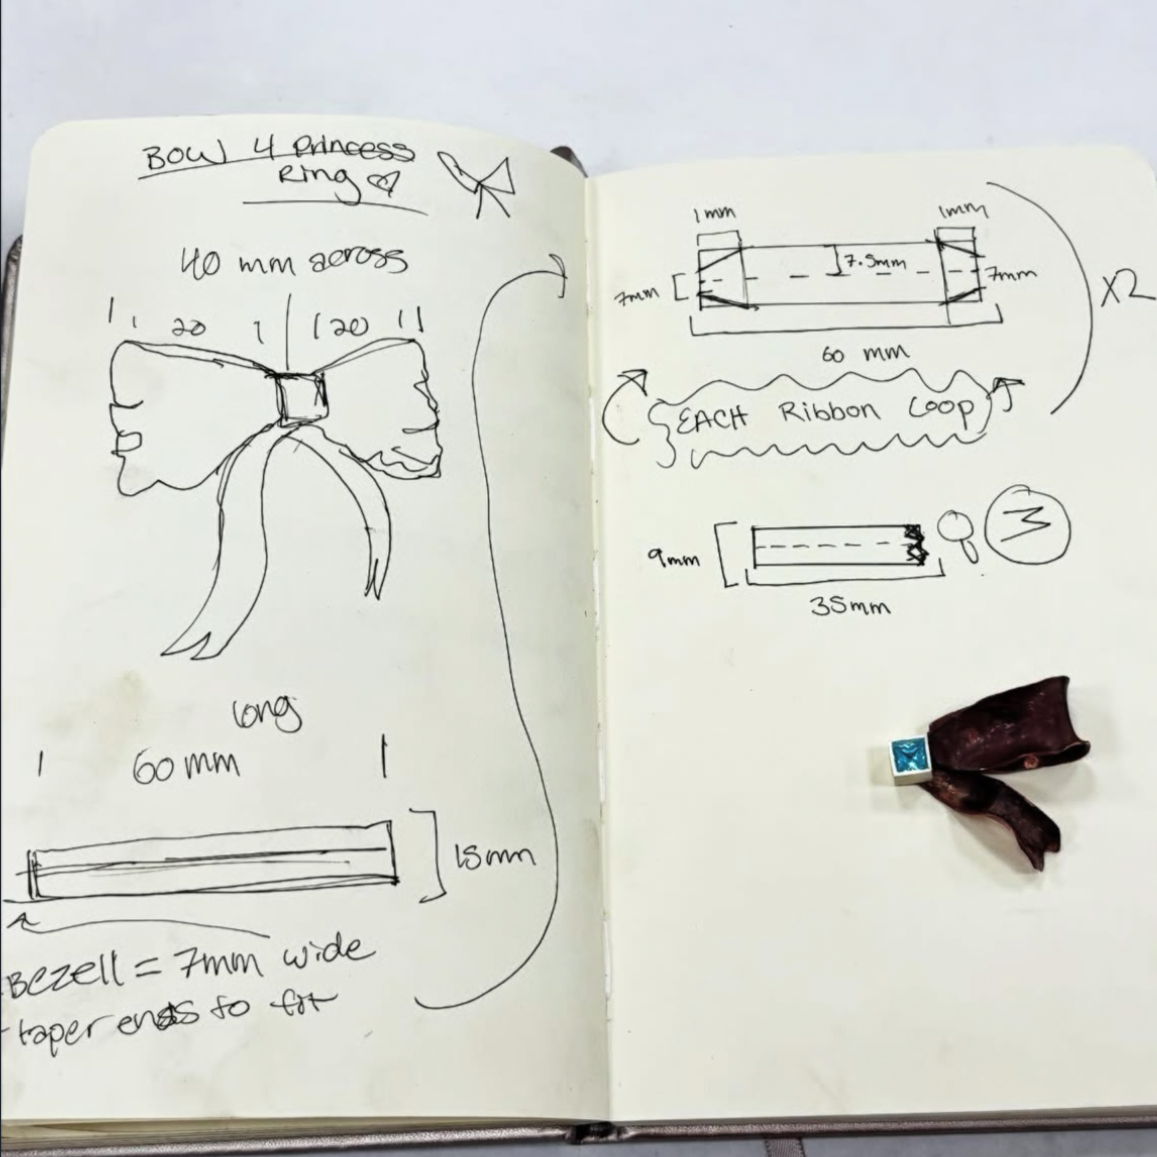 BOW 4 Princess
Ring
40 mm across
20
20
long
60 mm
15mm
Bezell = 7mm wide
taper ends to fit
1mm
1mm
7.5mm
7mm
7mm
X2
60 mm
EACH Ribbon Loop
9mm
35mm